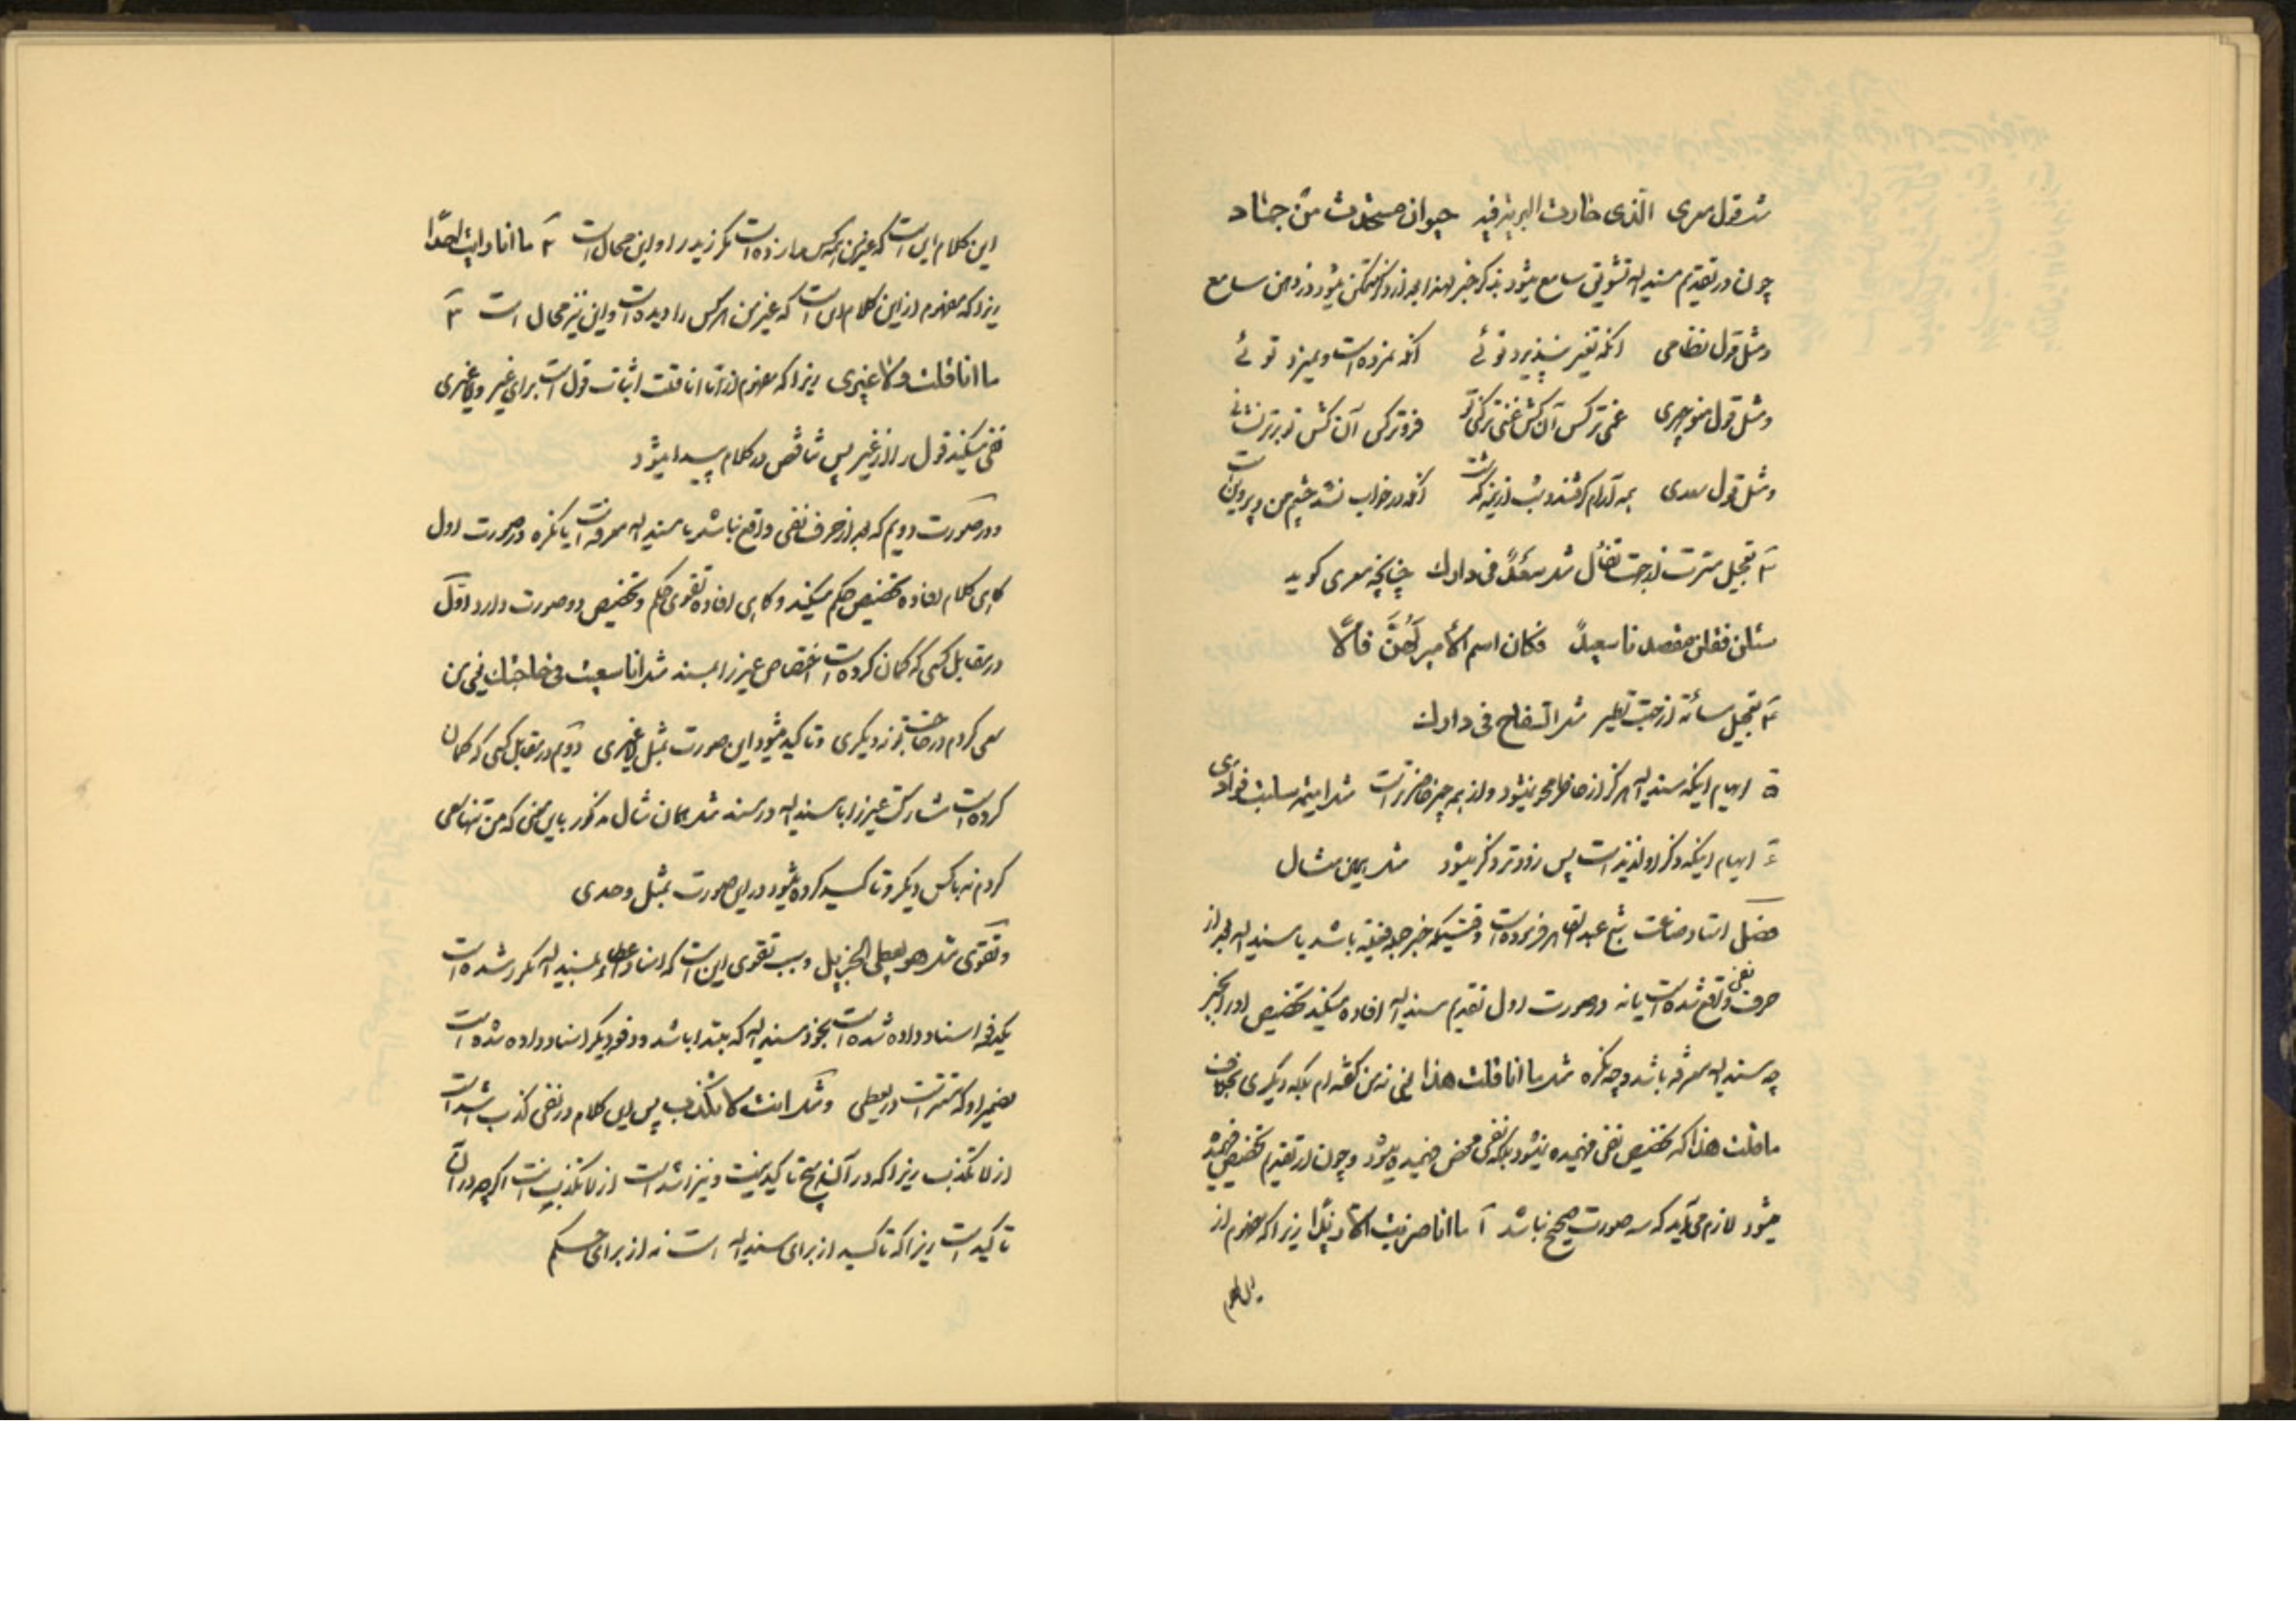 مثل قول معری الذی حارت البریة فیه حیوان مستحدث من جماد
چون در تقدیم مسند الیه تشویق سامع میشود بذکر خبر لهذا بعد از ذکر متمکن میشود در ذهن سامع
و مثل قول نظامی آنکه تغیر نپذیرد توئی آنکه نمرده است و نمیرد توئی
و مثل قول منوچهری غمی‌تر کس آن کش غنی‌تر کنی تو فروتر کس آن کش تو برتر نشانی
و مثل قول سعدی همه آرام گرفتند و شب از نیمه گذشت آنکه در خواب نشد چشم من و پروین است
۳ تعجیل مسرت از جهت تفأل مثل سعد فی دارک چنانچه معری گوید
سئلن فقلن مقصدنا سعید فکان اسم الأمیر لهن فالا
۴ تعجیل مسائة از جهت تطیر مثل السفاح فی دارک
۵ ایهام اینکه مسند الیه هرگز از خاطر محو نمیشود و از همه چیز حاضرتر است مثل امیمه سلبت فوادی
۶ ایهام اینکه ذکر او لذیذ است پس زودتر ذکر میشود مثل همین مثال
فصل استاد صناعت شیخ عبدالقاهر فرموده است وقتیکه خبر جمله فعلیه باشد یا مسند الیه بعد از
حرف نفی واقع شده است یا نه در صورت اول تقدیم مسند الیه افاده میکند تخصیص او را بخبر
چه مسند الیه معرفه باشد و چه نکره مثل ما انا قلت هذا یعنی نه من گفته ام بلکه دیگری بخلاف
ما قلت هذا که تخصیص نفی فهمیده نمیشود بلکه نفی محض فهمیده میشود و چون از تقدیم تخصیص فهمیده
میشود لازم می‌آید که سه صورت صحیح نباشد ۱ ما انا ضربت الا زیدا زیرا که مفهوم از
این کلام
این کلام این است که غیر من همه کس را زده است مگر زید را و این محال است ۲ ما انا رایت احدا
زیرا که مفهوم از این کلام این است که غیر من هر کس را دیده است و این نیز محال است ۳
ما انا قلت و لا غیری زیرا که مفهوم از ما انا قلت اثبات قول است برای غیر و لا غیری
نفی میکند قول را از غیر پس تناقض در کلام پیدا میشود
و در صورت دویم که بعد از حرف نفی واقع نباشد یا مسند الیه معرفه است یا نکره در صورت اول
گاهی کلام افاده تخصیص حکم میکند و گاهی افاده تقوی حکم و تخصیص دو صورت دارد اول
در مقابل کسی که گمان کرده است اختصاص غیر را بمسند مثل انا سعیت فی حاجتک یعنی من
سعی کردم در حاجت تو نه دیگری و تاکید میشود این صورت بمثل لا غیری دویم در مقابل کسی که گمان
کرده است مشارکت غیر را با مسند الیه در مسند مثل همان مثال مذکور باین معنی که من تنها سعی
کردم نه با کس دیگر و تاکید کرده میشود در این صورت بمثل وحدی
و تقوی مثل هو یعطی الجزیل و سبب تقوی این است که اسناد اعطاء بمسند الیه مکرر شده است
یکدفعه اسناد داده شده است بخود مسند الیه که مبتدا باشد و دفعه دیگر اسناد داده شده است
بضمیر او که مستتر است در یعطی و مثل انت لا تکذب پس این کلام در نفی کذب اشد است
از لا تکذب زیرا که در آن هیچ تاکید نیست و نیز اشد است از لا تکذب انت اگر چه در آن
تاکید است زیرا که تاکید از برای مسند الیه است نه از برای حکم